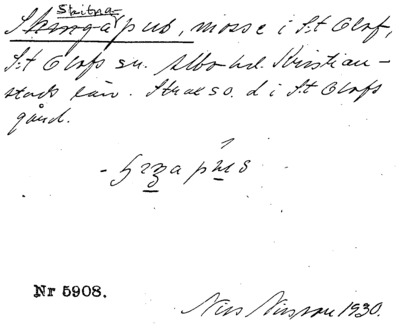 Skitna
Skrogapus, mosse i S:t Olof,
S:t Olofs sn. Albo hd. Kristian-
stads län. Strax so. d i S:t Olofs
gård.
Nr 5908.
Nils Nilsson 1930.